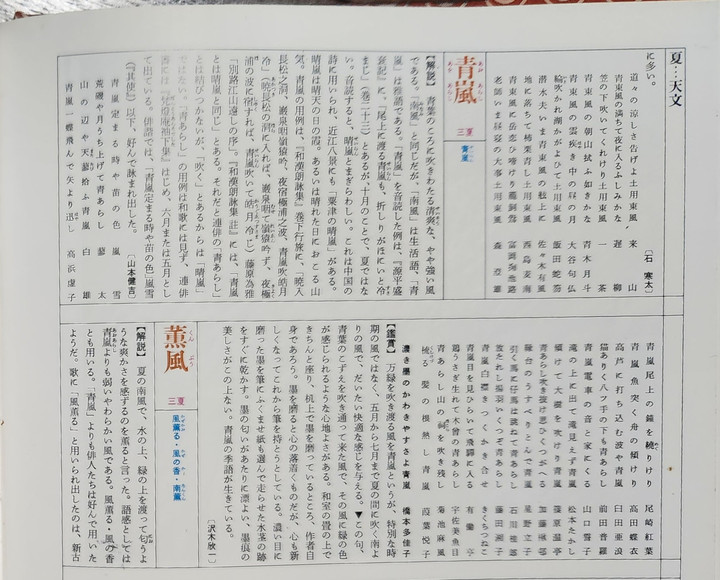 夏…天文
に多い。　〔石　寒太〕
道々の涼しさ告げよ土用東風　来山
青東風の満ちて夜に入るふしみかな　遅柳
笠の下吹いてくれけり土用東風　一茶
青東風の朝山拭ふ如きかな　青木月斗
青東風の雲疾き中の昼の月　大谷句仏
土用東風　飯田蛇笏
潜水夫いま青東風の　佐々木有風
地に落ちて柿栗青し土用東風　西島麦南
青東風に岳恋ひ　富岡掬池路
老師いま昼寝の大事土用東風　森澄雄
青嵐　あおあらし　三夏　青嵐
【解説】　青葉のころに吹きわたる清爽な、やや強い風
である。「南風」と同じだが、「南風」は生活語、「青
嵐」は雅語である。「青嵐」を音読した例は、『源平盛
衰記』に、「尾上に渡る青嵐も、折しりがほにいと冷
まじ」（巻二十三）とあるが、十月のことで、夏ではな
い。音読すると、晴嵐とまぎらわしい。これは中国の
詩に用いられ、近江八景にも「粟津の晴嵐」がある。
晴嵐は晴天の日の霞。あるいは晴れた日におこる山
気。青嵐の用例は、『和漢朗詠集』巻下行旅に、「暁入
長松之洞、巌泉咽嶺猿吟、夜宿極浦之波、青嵐吹皓月
冷」（暁長松の洞に入れば、巌泉咽て嶺猿吟ず、夜極
浦の波に宿すれば、青嵐吹いて皓月冷じ）藤原為雅
「別路江山遠しの序」。『和漢朗詠集註』には、「青嵐
とは晴嵐と同じ」とある。それだと連俳の「青あらし」
とは結びつかないが、「吹く」とあるからは「晴嵐」
ではない。「青あらし」の用例は和歌には見ず、連俳
はじめ、六月または五月とし
て出ている。俳諧では、「青嵐定まる時や苗の色」嵐雪
（『其便』）以下、好んで詠まれ出した。　〔山本健吉〕
青嵐定まる時や苗の色　嵐雪
荒磯や月うち上げて青あらし　蓼太
山の辺や天蓋拾ふ青嵐　白雄
青嵐一蝶飛んで矢より迅し　高浜虚子
青嵐尾上の鐘を　けり　尾崎紅葉
青嵐魚突く舟の傾けり　高田蝶衣
高芦に打ち込む波や青嵐　臼田亜浪
猫ありく八ツ手の下も青あらし　前田普羅
青嵐電車の音と家にくる　山口誓子
滝の上に出て滝見えず青嵐　松本たかし
傾けて大樹を通り青嵐　篠原温亭
青あらし吹き抜け思ひくつがへる　加藤楸邨
縁台のうすべりとんで青嵐　星野立子
引く馬に仔馬は跳ねて青あらし　石川桂郎
放たれし扇羽いくつぞ青あらし　藤田湘子
青嵐白　きつくかき合せ　きくちつねこ
青嵐目を見ひらいて飛騨に入る　有働亨
鶏うさぎ生れて木曾の青あらし　宇佐美魚目
青あらし山の祠を吹き残し　菊池麻風
梳る髪の根熱し青嵐　茂葉悦子
濃き墨のかわきやすさよ青嵐　橋本多佳子
【鑑賞】　万緑を吹き渡る風を青嵐というが、特別な時
期の風ではなく、五月から七月まで夏の間に吹く南よ
りの風で、だいたい快適な感じを与える。▼この句、
青葉のこずえを吹き通って来た風で、その風に緑の色
が感じられるような心地よさがある。和室の畳の上で
きちんと座り、机上で墨を磨っているところ、作者自
身であろう。墨を磨ると心の落着くものだが、心も新
しくなってこれから筆を持とうとしている。濃い目に
磨った墨を筆にふくませ紙も選んで走らせた水茎の跡
をすぐに乾かす。墨の匂いがあたりに漂よい、墨痕の
美しさがこの上ない。青嵐の季語が生きている。
〔沢木欣一〕
薫風　くんぷう　三夏　風薫る・風の香・南薫
【解説】　夏の南風で、水の上、緑の上を渡って匂うよ
うな爽かさを感ずるのを薫ると言った。語感としては
青嵐よりも弱いやわらかい風である。風薫る・風の香
とも用いる。「青嵐」よりも俳人たちは好んで用いた
ようだ。歌に「風薫る」と用いられ出したのは、新古